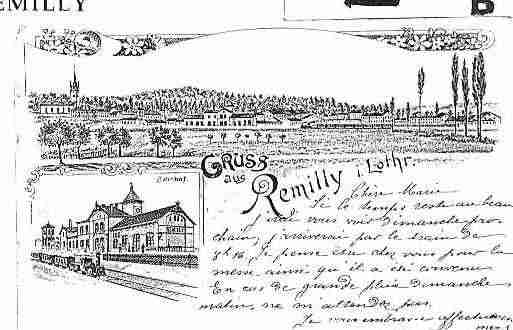 EMILLY
B
Gruss
aus
Remilly i. Lothr.
Bahnhof.
Chère Marie
Si le temps reste au beau
j'irai vous voir Dimanche pro-
chain, j'arriverai par le train de
Je pense être chez vous pour la
même ainsi qu'il a été convenu
En cas de grande pluie Dimanche
matin, ne m'attendez pas.
Je vous embrasse affectueu